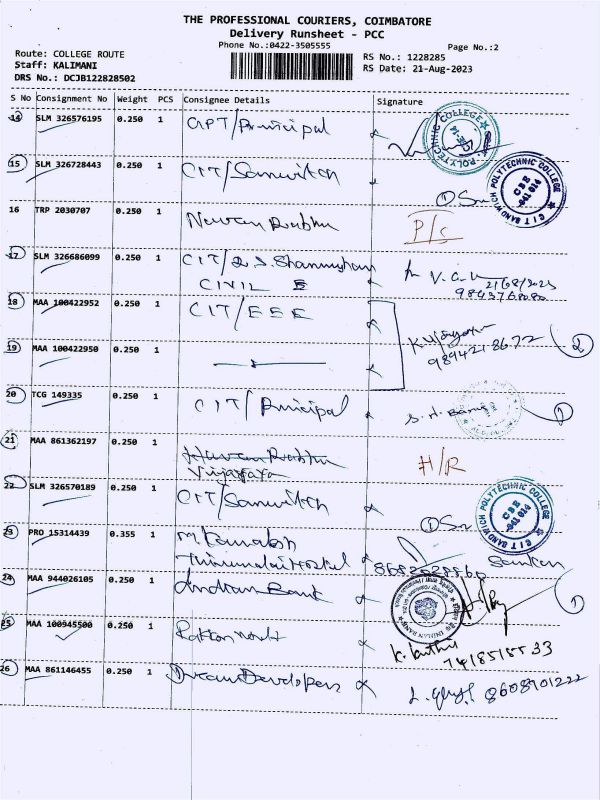 THE PROFESSIONAL COURIERS, COIMBATORE
Delivery Runsheet - PCC
Phone No.:0422-3505555
Page No.:2
Route: COLLEGE ROUTE
Staff: KALIMANI
DRS No.: DCJB122828502
RS No.: 1228285
RS Date: 21-Aug-2023
S No Consignment No Weight PCS Consignee Details Signature
14 SLM 326576195 0.250 1 GPT/Principal
POLYTECHNIC COLLEGE
15 SLM 326728443 0.250 1 CIT/Sanwitch
CIT SANDWICH POLYTECHNIC COLLEGE CBE -641 014
16 TRP 2030707 0.250 1 Naveen Prabhu P/S
17 SLM 326686099 0.250 1 CIT/ S. Shanmugham
CIVIL E
21/08/2023
18 MAA 100422952 0.250 1 CIT/EEE
9894218672 2
19 MAA 100422950 0.250 1
20 TCG 149335 0.250 1 CIT/Principal 1
21 MAA 861362197 0.250 1 Prabhu
H/R
22 SLM 326570189 0.250 1 CIT/Sanwitch
CIT SANDWICH POLYTECHNIC COLLEGE CBE -641 014
23 PRO 15314439 0.355 1
Thirumalai Hostel
24 MAA 944026105 0.250 1 Indian Bank 1
INDIAN BANK
25 MAA 100945500 0.250 1
26 MAA 861146455 0.250 1 Dream Developers 8608701222